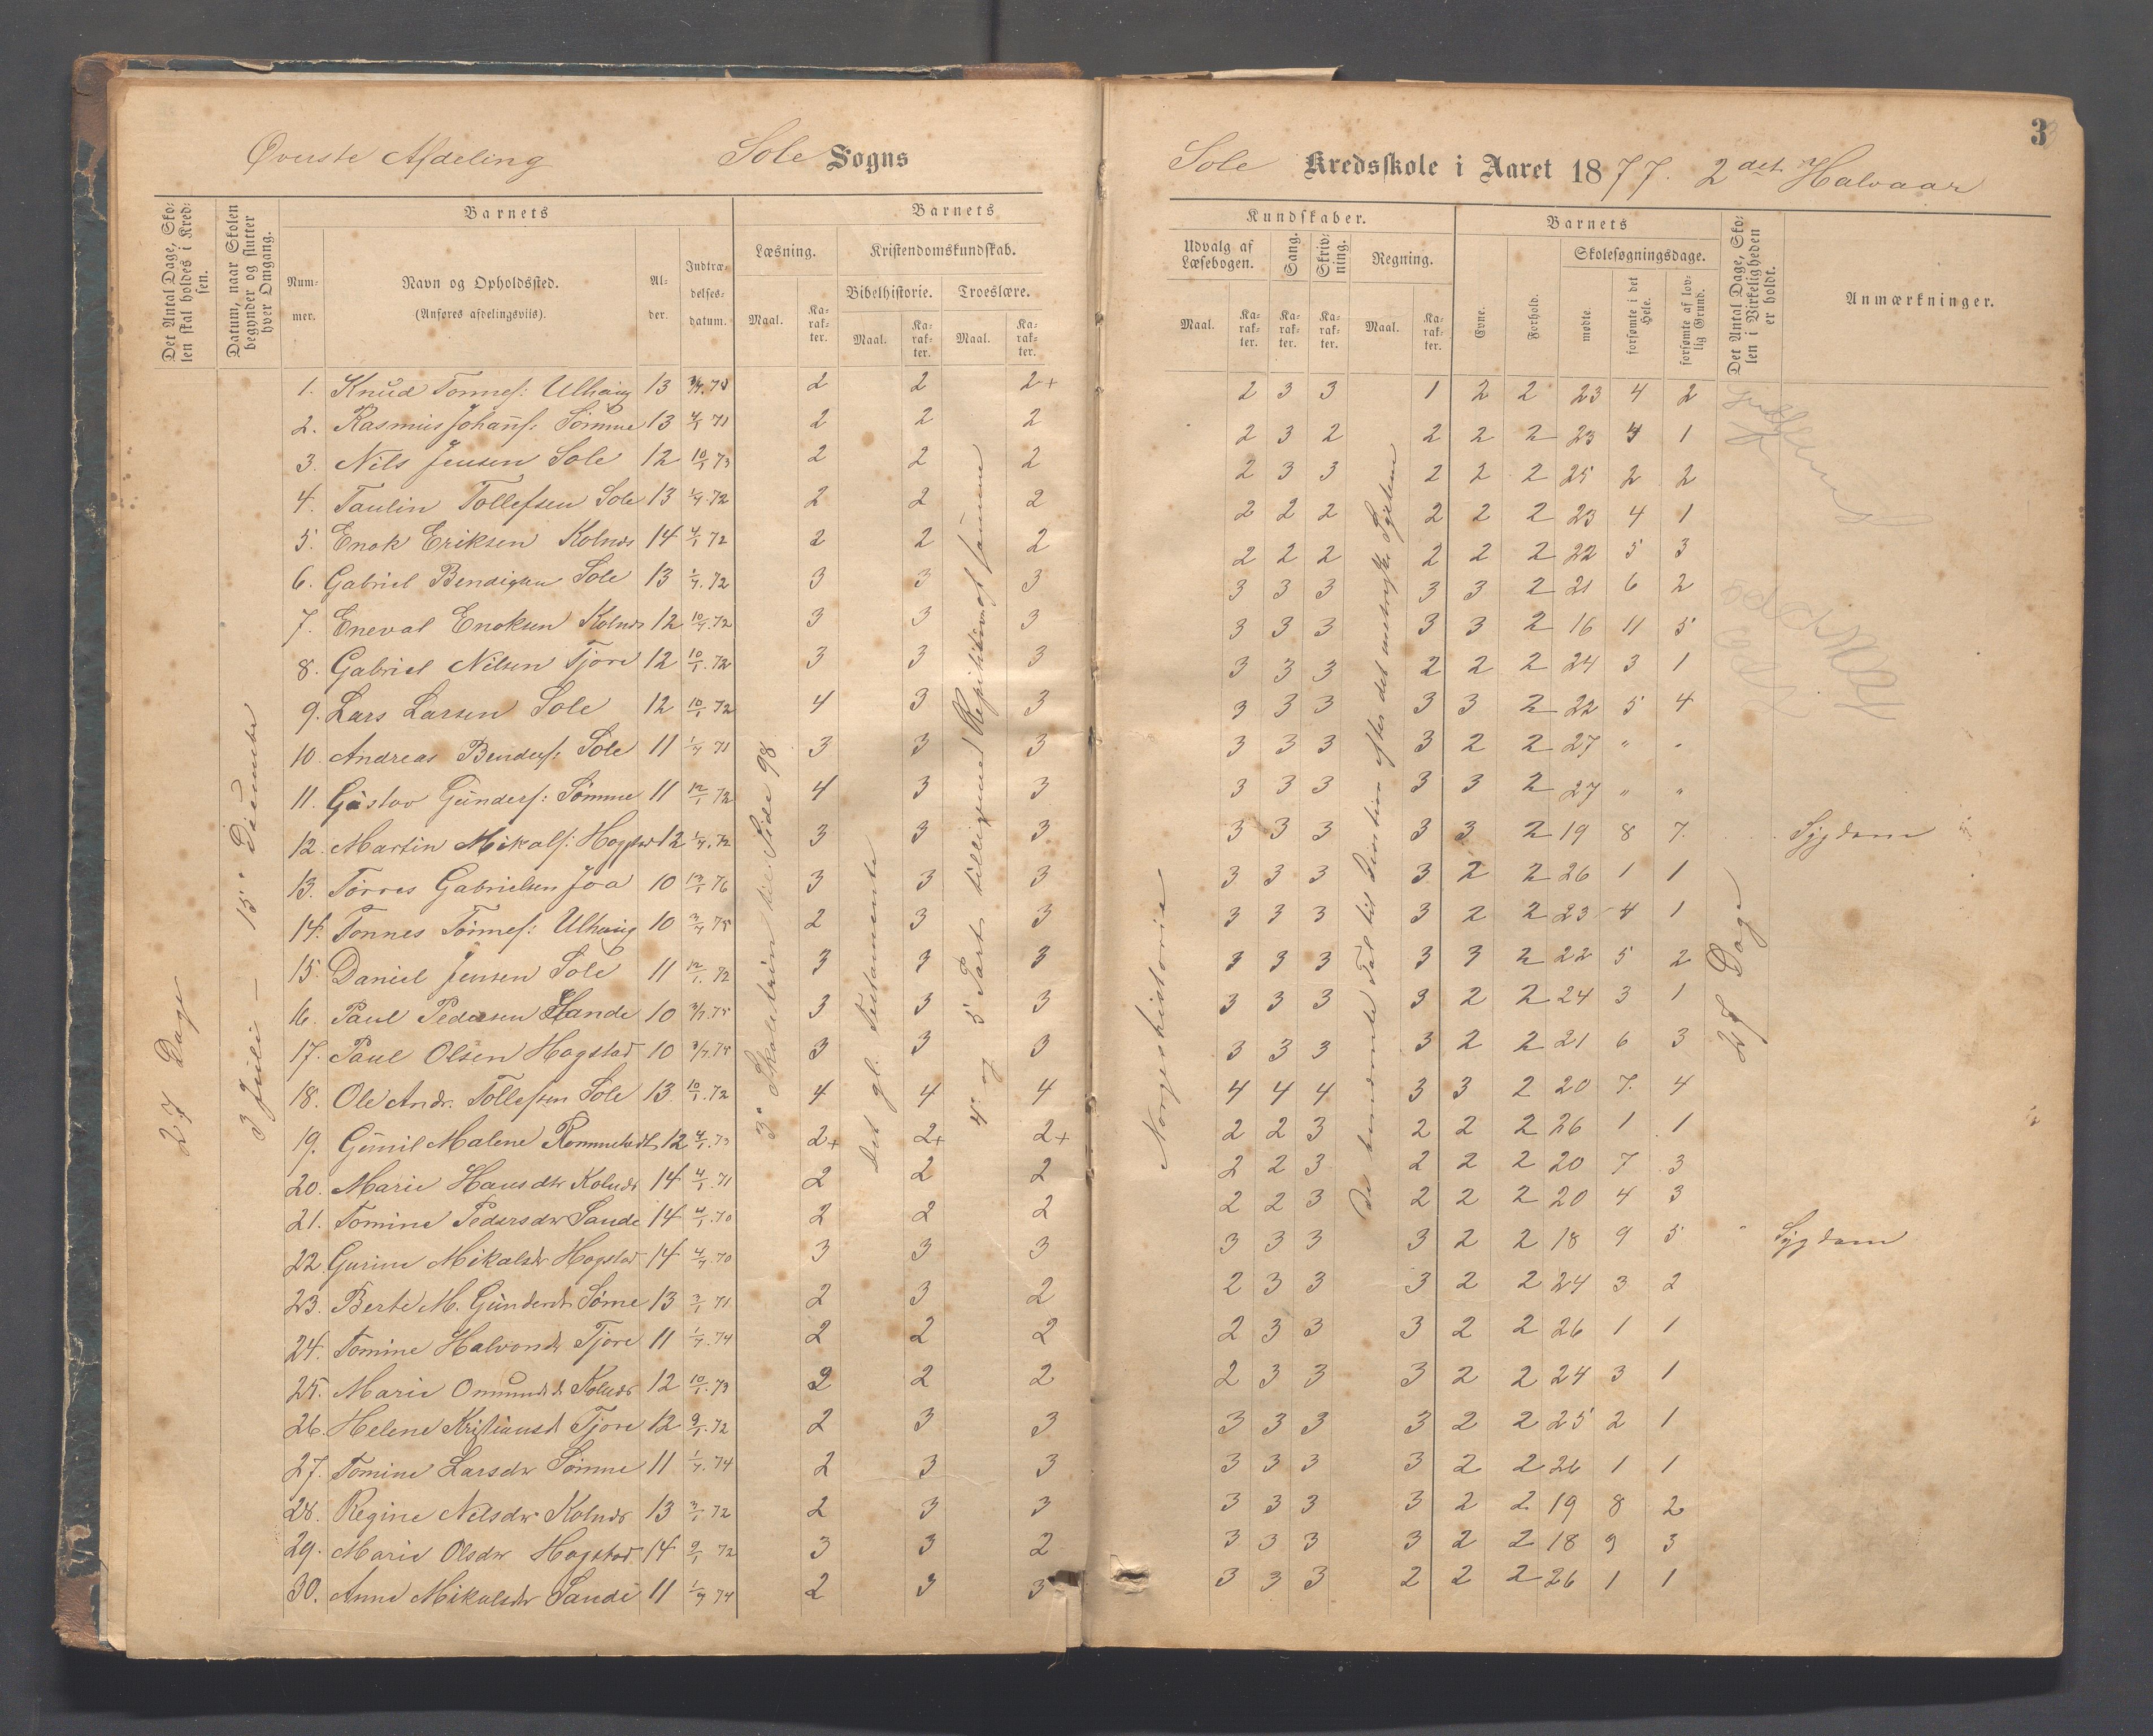 Øverste Afdeling Sole Sogns
Det Antal Dage, Skolen skal holdes i Kredsen.
Datum, naar Skolen begynder og slutter hver Omgang.
Barnets
Nummer.
Navn og Opholdssted.
(Anføres afdelingsviis).
Alder.
Indtrædelsesdatum.
Barnets
Læsning.
Kristendomskundskab.
Bibelhistorie. Troeslære.
Maal. Karakter. Maal. Karakter. Maal. Karakter.
27 Dage
3 Juli – 15de December
3e Skoletrin til Side 98
Det gl. Testamente
4de og 5te Part tilligemed Repitition af samme
1. Knud Tonnes: Ulhaug 13 3/7.75 2 2 2+
2. Rasmus Johans: Sømme 13 4/1 71 2 2 2
3. Nils Jensen Sole 12 10/1 73 2 2 2
4. Taulin Tollefsen Sole 13 1/7.72 2 2 2
5. Enok Eriksen Kolnes 14 4/1 72 2 2 2
6. Gabriel Bendigtsen Sole 13 1/7.72 3 3 3
7. Eneval Enoksen Kolnes 12 10/1.72 3 3 3
8. Gabriel Nilsen Tjore 12 10/1.72 3 3 3
9. Lars Larsen Sole 12 10/1.72 4 3 3
10. Andreas Benders: Sole 11 1/7 71 3 3 3
11. Gustav Gunders: Sømme 11 12/1 72 4 3 3
12. Martin Mikals: Hogstad 12 1/7.72 3 3 3
13. Torres Gabrielsen Joa 10 13/1 76 3 3 3
14. Tonnes Tonnes: Ulhaug 10 3/7 75 2 3 3
15. Daniel Jensen Sole 11 12/1.72 3 3 3
16. Paul Pedersen Sande 10 3/7.75 3 3 3
17. Paul Olsen Hogstad 10 3/7.75 3 3 3
18. Ole Andr. Tollefsen Sole 13 10/1.72 4 4 4
19. Gunil Malene Rommetvedt 12 4/1.73 2+ 2+ 2+
20. Marie Hansdtr Kolnes 14 4/1.71 2 2 2
21. Tomine Pedersdtr Sande 14 4/1.70 2 2 2
22. Gurine Mikalsdr Hogstad 14 4/7 70 3 3 3
23. Berte M. Gundersdr Sømme 13 3/1 71 2 3 2
24. Tomine Halvorsdr Tjore 11 1/7.74 2 2 2
25. Marie Omundsd. Kolnes 12 10/1.73 2 2 2
26. Helene Kristiansd Tjore 12 9/1.72 2 3 3
27. Tomine Larsdtr Sømme 11 1/7.74 2 3 3
28. Regine Nilsdtr Kolnes 13 3/1 72 2 3 3
29. Marie Olsdtr Hogstad 14 9/1 72 3 3 2
30. Anne Mikalsdtr Sande 11 1/7 74 2 3 3
3
Sole Kredsskole i Aaret 1877. 2det Halvaar
Kundskaber.
Udvalg af Læsebogen.
Sang.
Skrivning.
Regning.
Barnets
Evne.
Forhold.
Skolesøgningsdage.
mødte.
forsømte i det Hele.
forsømte af lovlig Grund.
Det Antal Dage, Skolen i Virkeligheden er holdt.
Anmærkninger.
Maal. Karakter. Karakter. Karakter. Maal. Karakter.
Norgeshistorie
De benævnte Tal til Division efter det
27 Dage
2 3 3 1 2 2 23 4 2
2 3 2 2 2 2 23 4 1
2 3 3 2 2 2 25 2 2
2 2 2 2 2 2 23 4 1
2 2 2 2 2 2 22 5 3
3 3 3 3 3 2 21 6 2
3 3 3 3 3 2 16 11 5
3 3 3 2 2 2 24 3 1
3 3 3 3 3 2 22 5 4
3 3 3 3 2 2 27 " "
3 3 3 3 3 2 27 " "
3 3 3 3 3 2 19 8 7. Sygdom
3 3 3 3 2 2 26 1 1
3 3 3 3 2 2 23 4 1
3 3 3 3 3 2 22 5 2
3 3 3 3 2 2 24 3 1
3 3 3 3 2 2 21 6 3
4 4 4 3 3 2 20 7. 4
2 2 3 2 2 2 26 1 1
2 2 3 2 2 2 20 7 3
2 2 3 2 2 2 20 4 3
3 3 3 3 2 2 18 9 5 " Sygdom
2 3 3 3 2 2 24 3 2
2 3 3 3 2 2 26 1 1
2 3 3 3 2 2 24 3 1
3 3 3 3 2 2 25 2 1
3 3 3 3 2 2 26 1 1
3 3 3 3 2 2 19 8 2
3 3 3 3 2 2 18 9 3
3 3 3 2 2 2 26 1 1